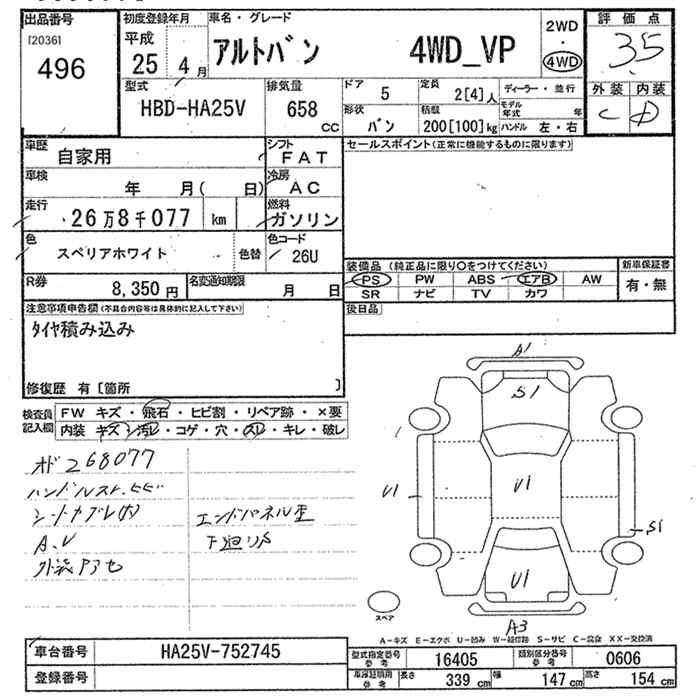 出品番号
[2036]
496
初度登録年月
平成
25 4月
車名・グレード
アルトバン 4WD_VP
2WD
・
4WD
評価点
3.5
型式
HBD-HA25V
排気量
658 cc
ドア 5
定員 2[4]人
形状 バン
積載 200[100]kg
ディーラー・並行
モデル年式 年
ハンドル 左・右
外装 内装
C D
車歴
自家用
シフト
FAT
車検
年 月( 日)
冷房
AC
走行
26万8千077 km
燃料
ガソリン
色
スペリアホワイト
色替
色コード
26U
R券
8,350円
名変通知期限
月 日
セールスポイント(正常に機能するものに限ります)
装備品 (純正品に限り○をつけてください)
新車保証書
PS PW ABS エアB AW
SR ナビ TV カワ
有・無
後日品
注意事項申告欄(不具合内容等は具体的に記入して下さい)
タイヤ積み込み
修復歴 有[箇所 ]
検査員記入欄
FW キズ・飛石・ヒビ割・リペア跡・×要
内装 キズ・汚レ・コゲ・穴・スレ・キレ・破レ
オド268077
ハンドルスレ.ヒビ
エンドパネル歪
A.U
下廻りサ
A1
S1
U1
U1
S1
U1
A3
スペア
A-キズ E-エクボ U-凹み W-補修跡 S-サビ C-腐食 XX-交換済
車台番号
HA25V-752745
登録番号
型式指定番号 参考
16405
類別区分番号 参考
0606
車庫証明用 参考
長さ 339 cm
幅 147 cm
高さ 154 cm